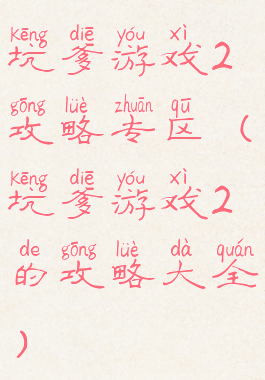 kēng diē yóu xì
坑爹游戏2
gōng lüè zhuān qū
攻略专区（
kēng diē yóu xì
坑爹游戏2
de gōng lüè dà quán
的攻略大全
）